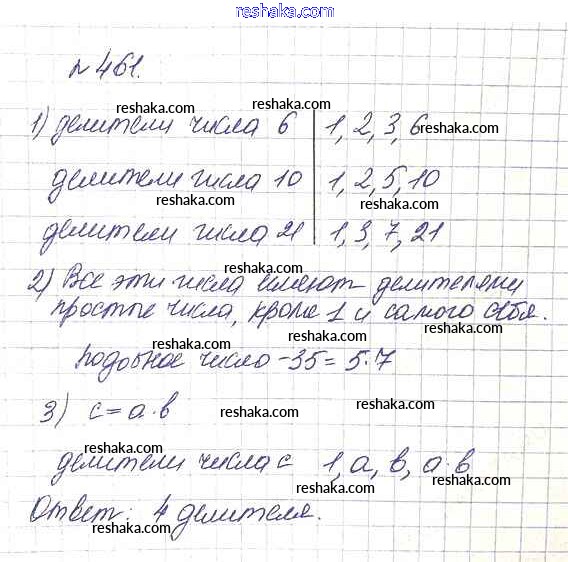 reshaka.com
№ 461.
reshaka.com reshaka.com
1) делители числа 6 | 1, 2, 3, 6
reshaka.com
делители числа 10 | 1, 2, 5, 10
reshaka.com reshaka.com
делители числа 21 | 1, 3, 7, 21
reshaka.com reshaka.com
2) Все эти числа имеют делителями
reshaka.com
простые числа, кроме 1 и самого себя.
reshaka.com reshaka.com
Подобное число - 35 = 5·7
reshaka.com reshaka.com
3) c = a·b
reshaka.com reshaka.com
делители числа c 1, a, b, a·b
reshaka.com reshaka.com
Ответ: 4 делителя.
reshaka.com reshaka.com